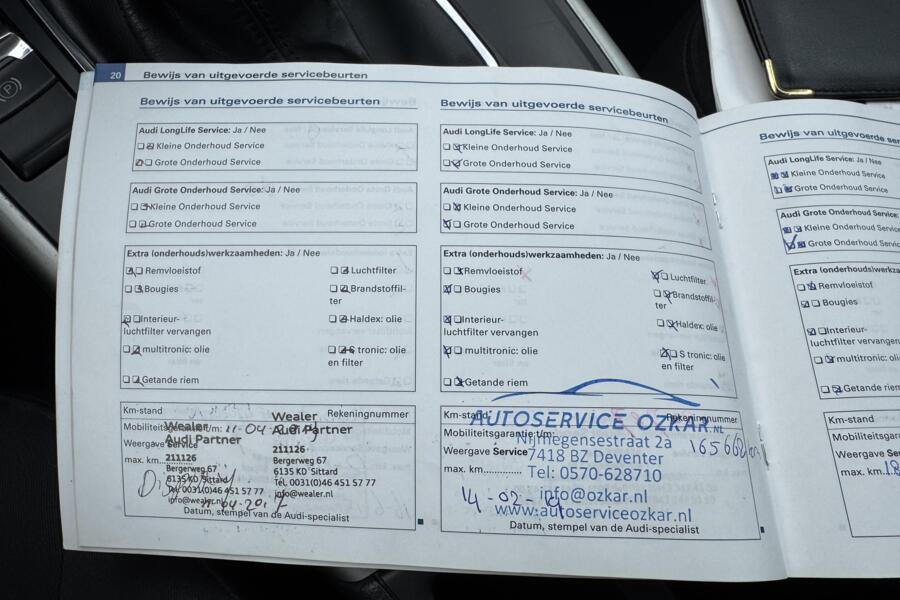 20 Bewijs van uitgevoerde servicebeurten
Bewijs van uitgevoerde servicebeurten
Audi LongLife Service: Ja / Nee
Kleine Onderhoud Service
Grote Onderhoud Service
Audi Grote Onderhoud Service: Ja / Nee
Kleine Onderhoud Service
Grote Onderhoud Service
Extra (onderhouds)werkzaamheden: Ja / Nee
Remvloeistof
Luchtfilter
Bougies
Brandstoffil-
ter
Interieur-
luchtfilter vervangen
Haldex: olie
multitronic: olie
S tronic: olie
en filter
Getande riem
Km-stand
Rekeningnummer
Mobiliteitsgarantie t/m:
Weergave Service
max. km.
Wealer
Audi Partner
211126
Bergerweg 67
6135 KD Sittard
Tel. 0031(0)46 451 57 77
info@wealer.nl
Wealer
Audi Partner
211126
Bergerweg 67
6135 KD Sittard
Tel. 0031(0)46 451 57 77
info@wealer.nl
Datum, stempel van de Audi-specialist
Bewijs van uitgevoerde servicebeurten
Audi LongLife Service: Ja / Nee
Kleine Onderhoud Service
Grote Onderhoud Service
Audi Grote Onderhoud Service: Ja / Nee
Kleine Onderhoud Service
Grote Onderhoud Service
Extra (onderhouds)werkzaamheden: Ja / Nee
Remvloeistof
Luchtfilter
Bougies
Brandstoffil-
ter
Interieur-
luchtfilter vervangen
Haldex: olie
multitronic: olie
S tronic: olie
en filter
Getande riem
Km-stand
Rekeningnummer
Mobiliteitsgarantie t/m:
Weergave Service
max. km.............
AUTOSERVICE OZKAR.NL
Nijmegensestraat 2a
7418 BZ Deventer
Tel: 0570-628710
info@ozkar.nl
www.autoserviceozkar.nl
Datum, stempel van de Audi-specialist
Bewijs van uitgevoerde ser
Audi LongLife Service: Ja / Ne
Kleine Onderhoud Service
Grote Onderhoud Service
Audi Grote Onderhoud Service:
Kleine Onderhoud Service
Grote Onderhoud Service
Extra (onderhouds)werkza
Remvloeistof
Bougies
Interieur-
luchtfilter vervangen
multitronic: olie
Getande riem
Km-stand
Mobiliteitsgara
Weergave Servic
max. km.